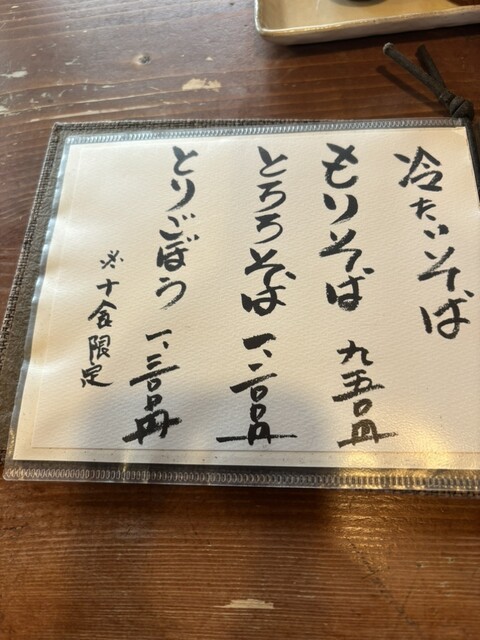 冷たいそば
もりそば 九五〇円
とろろそば 一、二〇〇円
とりごぼう 一、三〇〇円
※十食限定